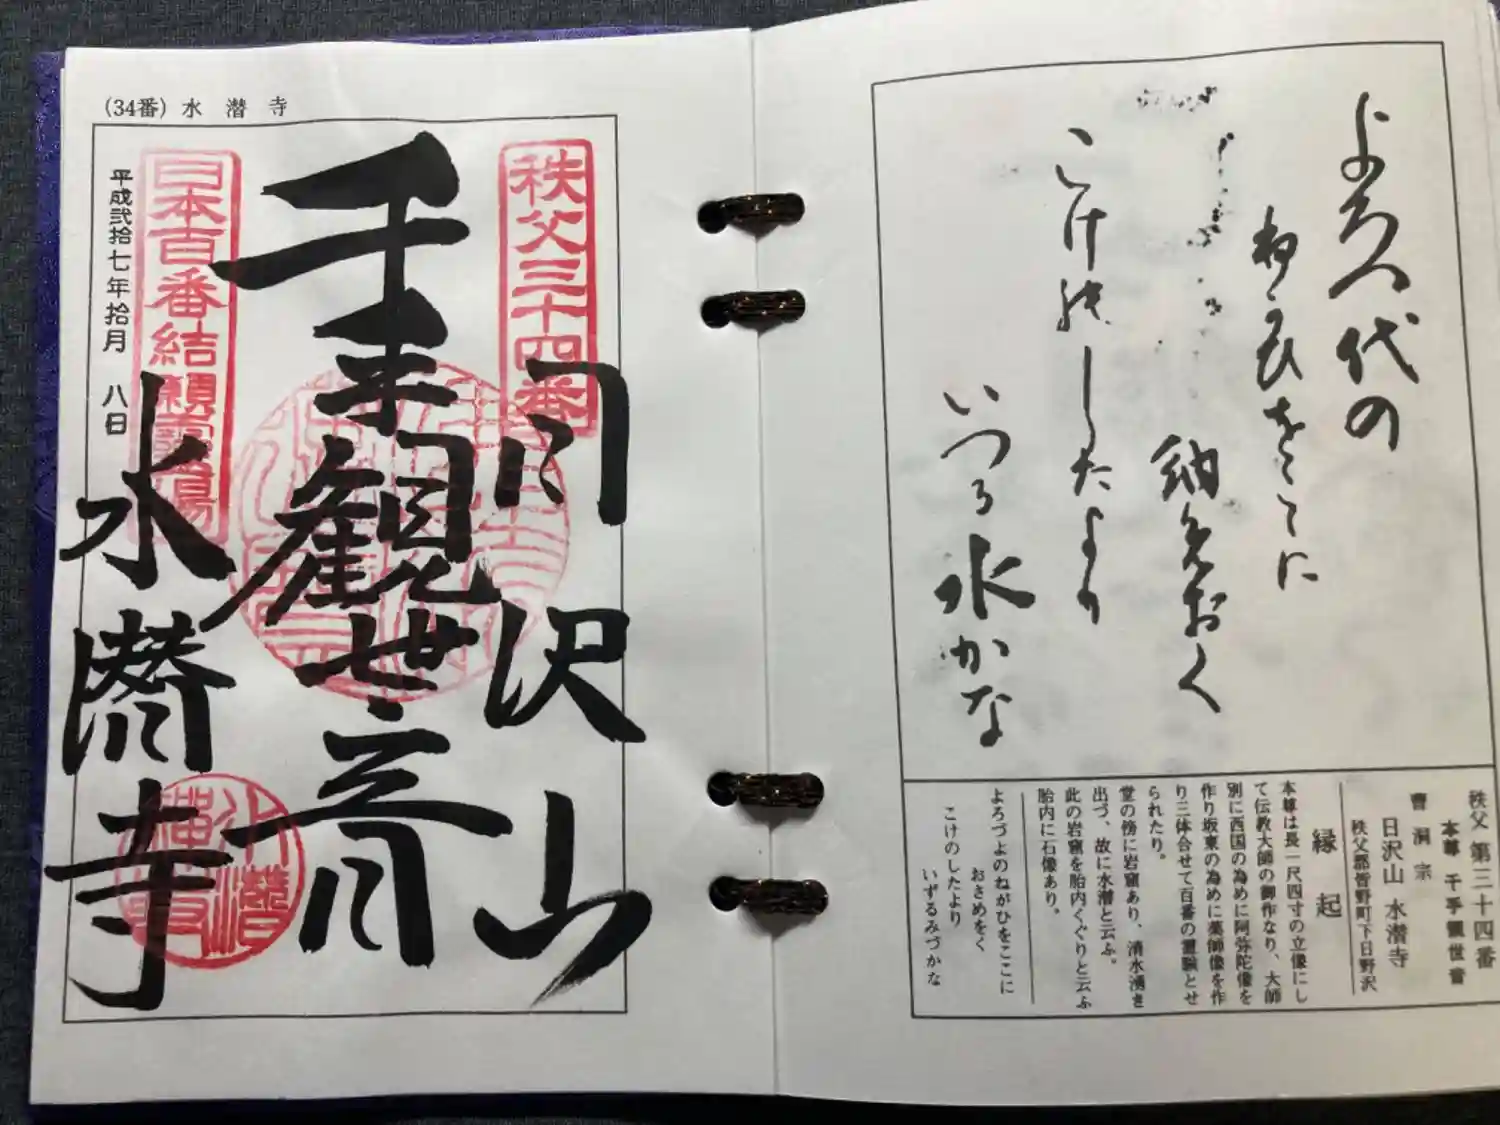 よろつ代の
ねかひをこゝに
納めおく
こけのしたより
いつる水かな
秩父 第三十四番
本尊 千手観世音
曹洞宗
日沢山 水潜寺
秩父郡皆野町下日野沢
縁起
本尊は長一尺四寸の立像にし
て伝教大師の御作なり、大師
別に西国の為めに阿弥陀像を
作り坂東の為めに薬師像を作
り三体合せて百番の霊験とせ
られたり。
堂の傍に岩窟あり、清水湧き
出づ、故に水潜と云ふ。
此の岩窟を胎内くぐりと云ふ
胎内に石像あり。
よろづよのねがひをここに
おさめをく
こけのしたより
いずるみづかな
(34番) 水潜寺
秩父三十四番
日沢山
千手観世音
日本百番結願霊場
平成弐拾七年拾月 八日
水潜寺